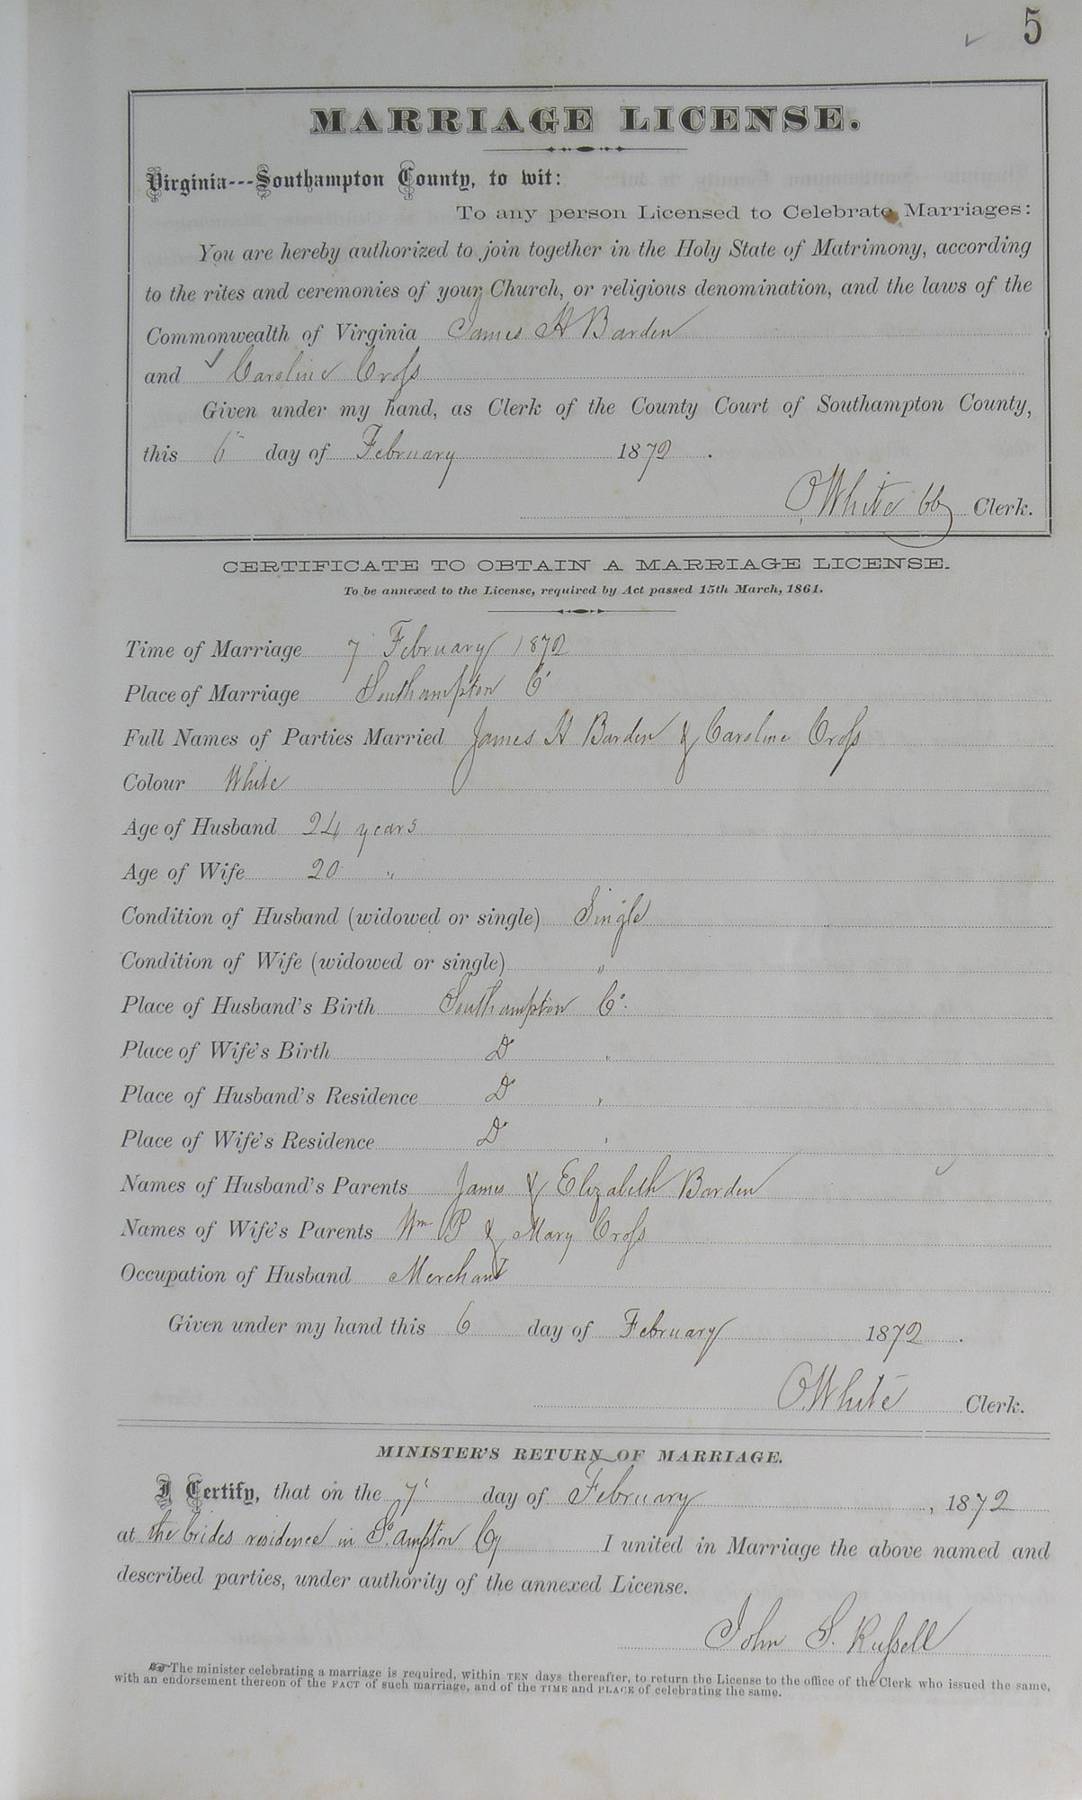 5
MARRIAGE LICENSE.
Virginia---Southampton County, to wit:
To any person Licensed to Celebrate Marriages:
You are hereby authorized to join together in the Holy State of Matrimony, according
to the rites and ceremonies of your Church, or religious denomination, and the laws of the
Commonwealth of Virginia James H Barden
and Caroline Cross
Given under my hand, as Clerk of the County Court of Southampton County,
this 6" day of February 1872.
O. White Clerk.
CERTIFICATE TO OBTAIN A MARRIAGE LICENSE.
To be annexed to the License, required by Act passed 15th March, 1861.
Time of Marriage 7 February 1872
Place of Marriage Southampton Co
Full Names of Parties Married James H Barden & Caroline Cross
Colour White
Age of Husband 24 years
Age of Wife 20 "
Condition of Husband (widowed or single) Single
Condition of Wife (widowed or single) "
Place of Husband's Birth Southampton Co.
Place of Wife's Birth Do "
Place of Husband's Residence Do "
Place of Wife's Residence Do "
Names of Husband's Parents James & Elizabeth Barden
Names of Wife's Parents Wm P & Mary Cross
Occupation of Husband Merchant
Given under my hand this 6 day of February 1872.
O. White Clerk.
MINISTER'S RETURN OF MARRIAGE.
I Certify, that on the 7 day of February, 1872
at the brides residence in So.ampton Cy I united in Marriage the above named and
described parties, under authority of the annexed License.
John S. Russell
The minister celebrating a marriage is required, within TEN days thereafter, to return the License to the office of the Clerk who issued the same,
with an endorsement thereon of the FACT of such marriage, and of the TIME and PLACE of celebrating the same.